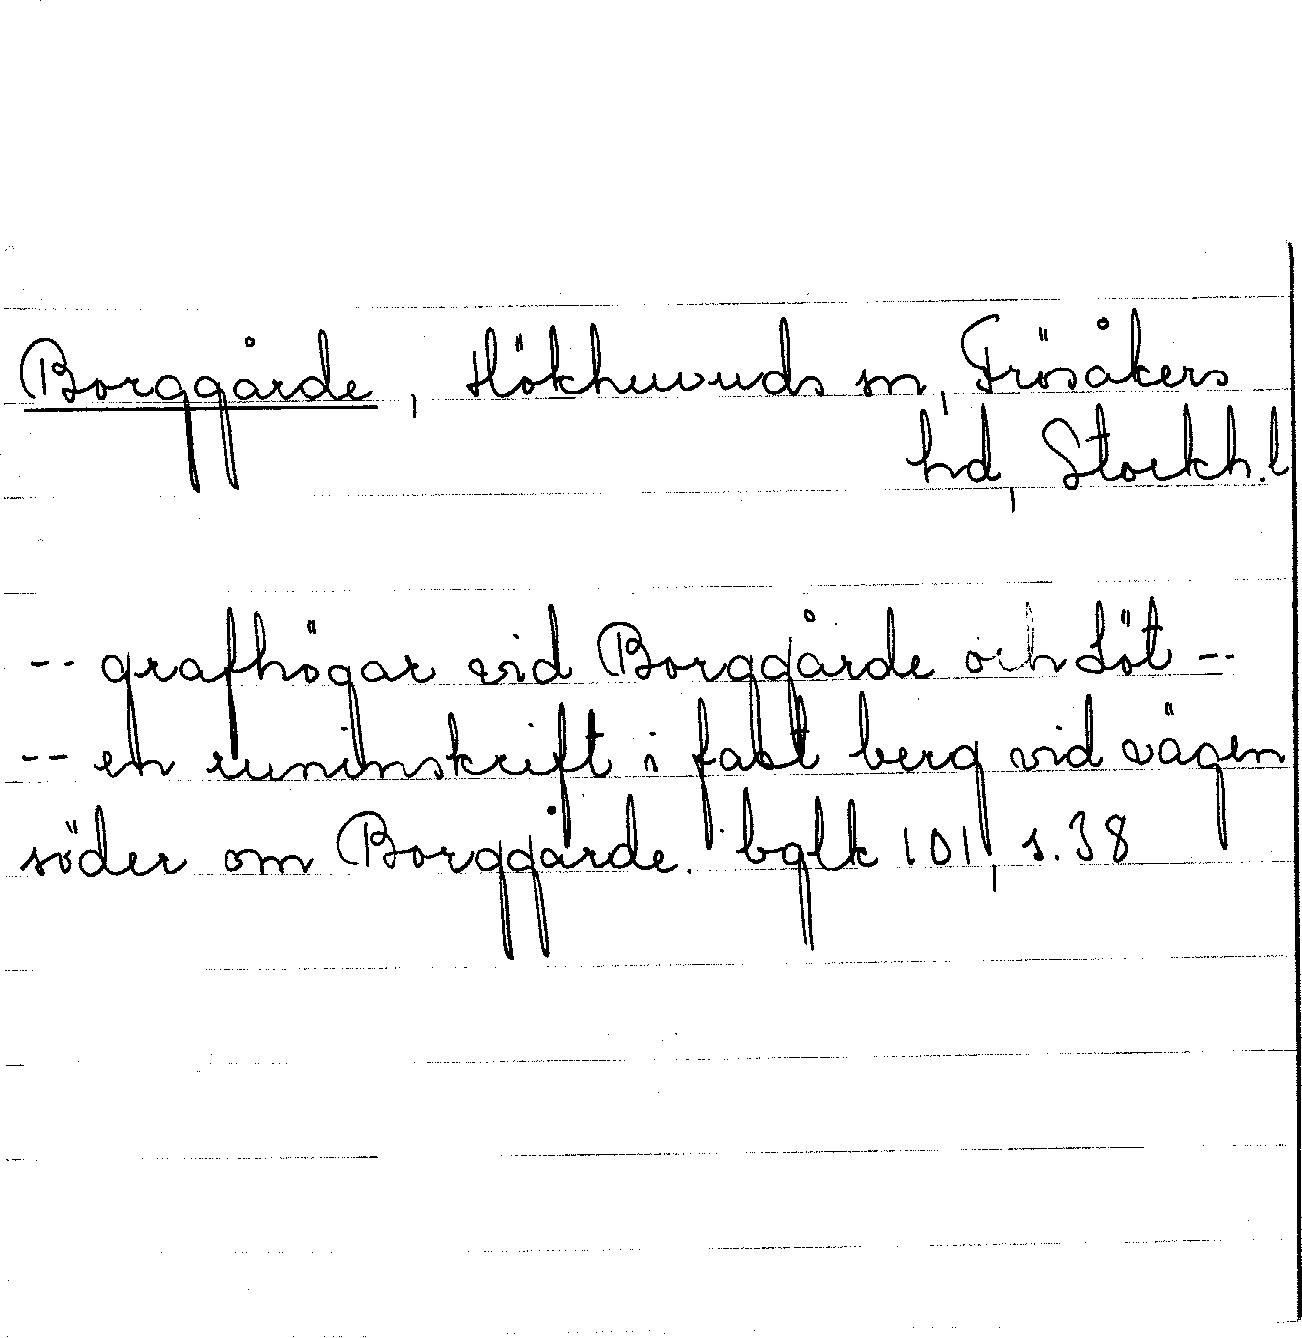 Borggårde, Hökhuvuds sn, Frösåkers
hd, Stockh.l
-- grafhögar vid Borggårde och Löt --
-- en runinskrift i fast berg vid vägen
söder om Borggårde. bglk 101, s.38